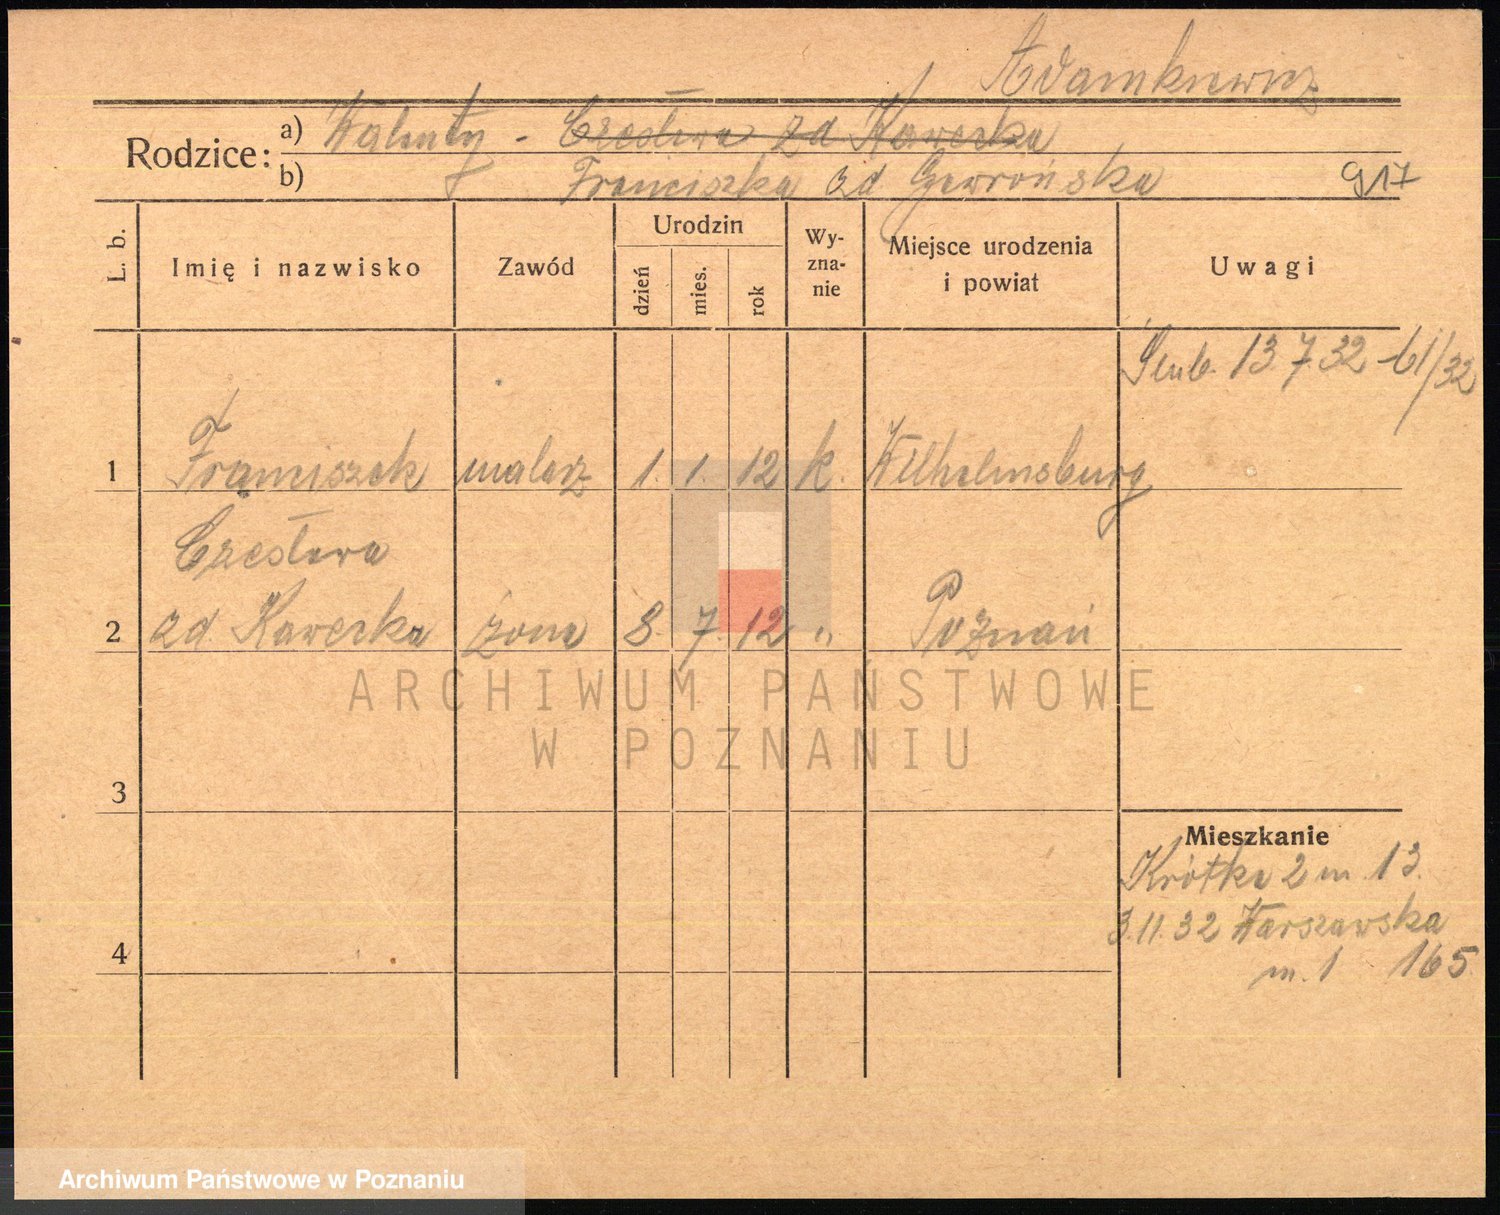 Adamkiewicz
Rodzice: a) Walenty - Czesława zd Kawecka
b) Franciszka zd Gawrońska 917
L. b. Imię i nazwisko Zawód Urodzin dzień mies. rok Wy-zna-nie Miejsce urodzenia i powiat Uwagi
Ślub. 13 7 32 61/32
1 Franciszek malarz 1. 1. 12 k. Wilhelmsburg
Czesława
2 zd. Kawecka żona 8. 7. 12 " Poznań
ARCHIWUM PAŃSTWOWE
W POZNANIU
3
Mieszkanie
Krótka 2 m. 13.
3.11.32 Warszawska
4
m. 1 165
Archiwum Państwowe w Poznaniu